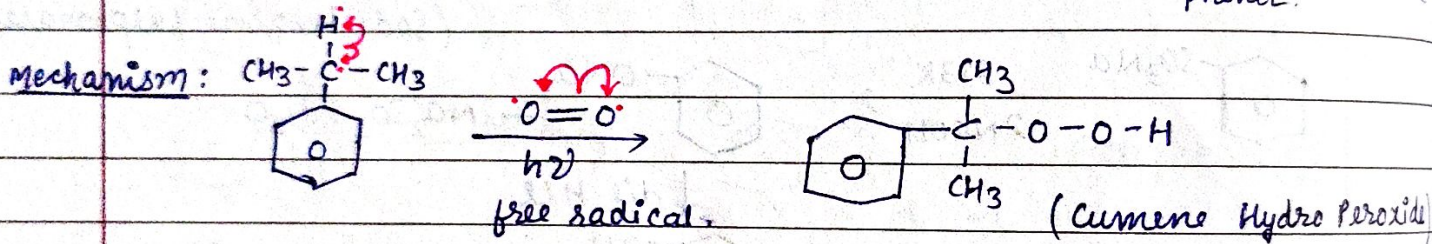 H
Mechanism: CH3-C-CH3
O=O
hν
free radical.
CH3
C-O-O-H
CH3
(Cumene Hydro Peroxide)